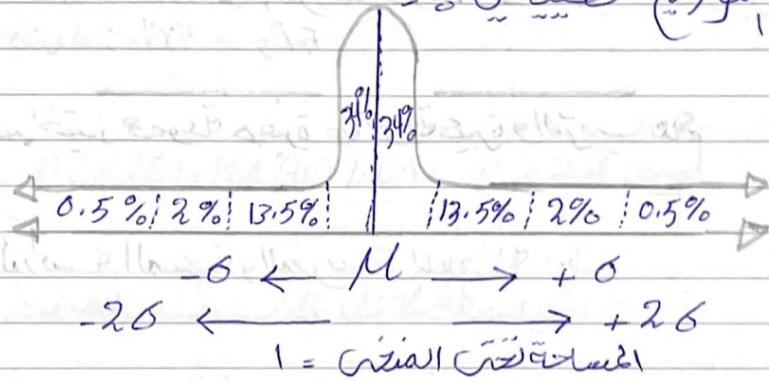 34% 34%
0.5% 2% 13.5% 13.5% 2% 0.5%
-σ ← μ → +σ
-2σ ← → +2σ
المساحة تحت المنحنى = 1